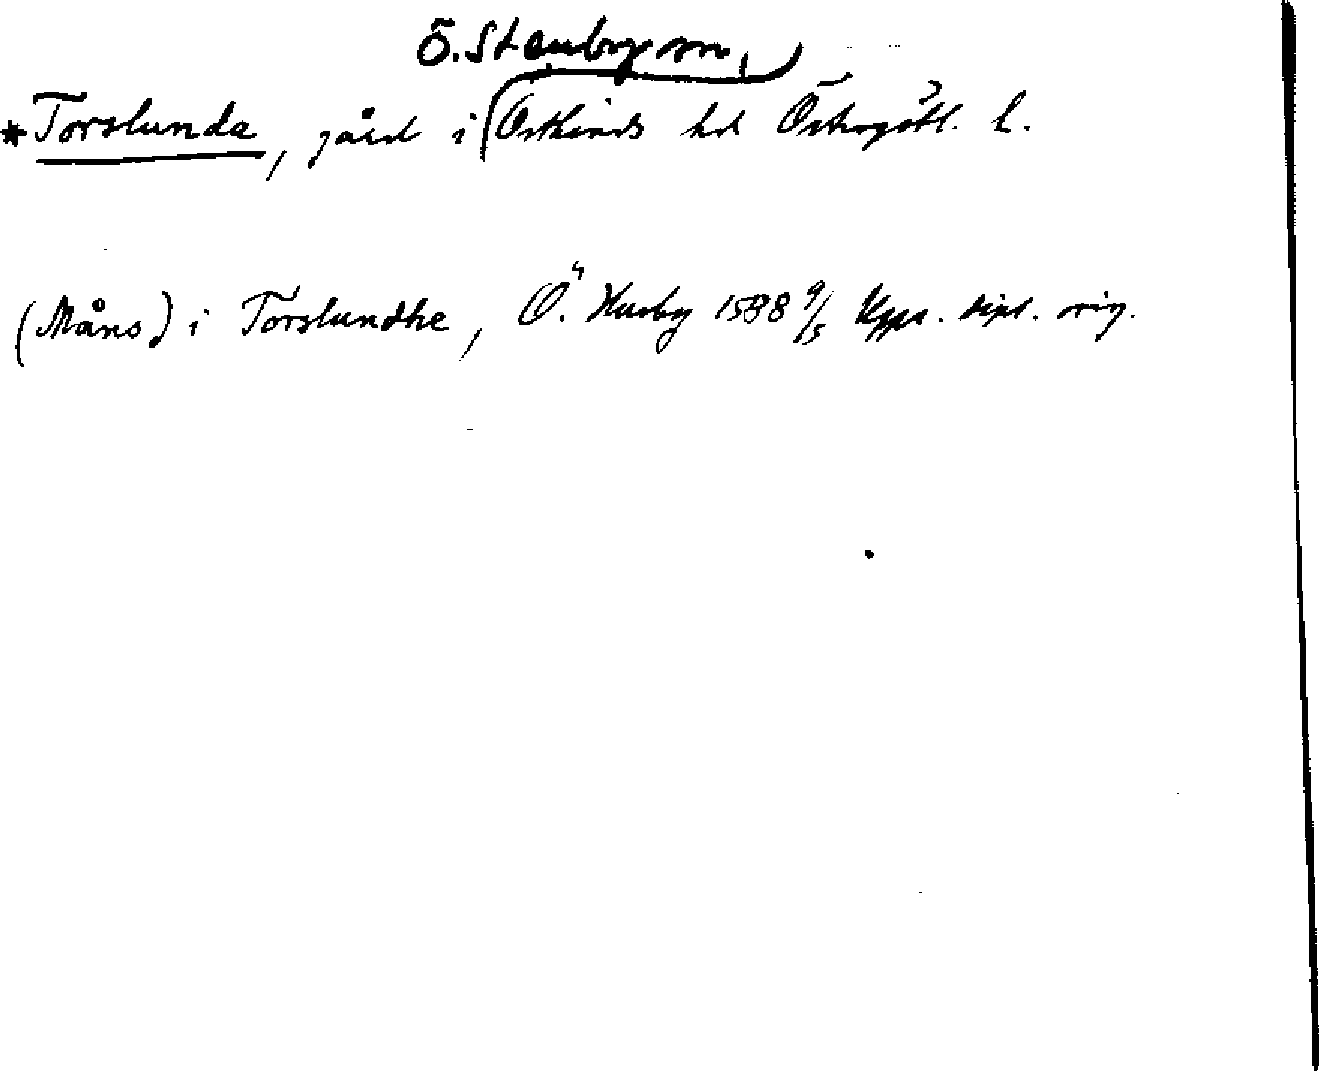 Ö. Stenby sn,
*Torslunda, gård i Östkinds hd Östergötl. l.
(Måns) i Torslundhe, Ö. Husby 1588 9/5 Upps. dipl. orig.